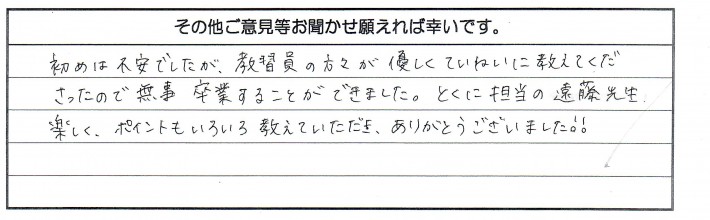 その他ご意見等お聞かせ願えれば幸いです。
初めは不安でしたが、教習員の方々が優しくていねいに教えてくだ
さったので無事 卒業することができました。とくに担当の遠藤先生.
楽しく、ポイントもいろいろ教えていただき、ありがとうございました!!